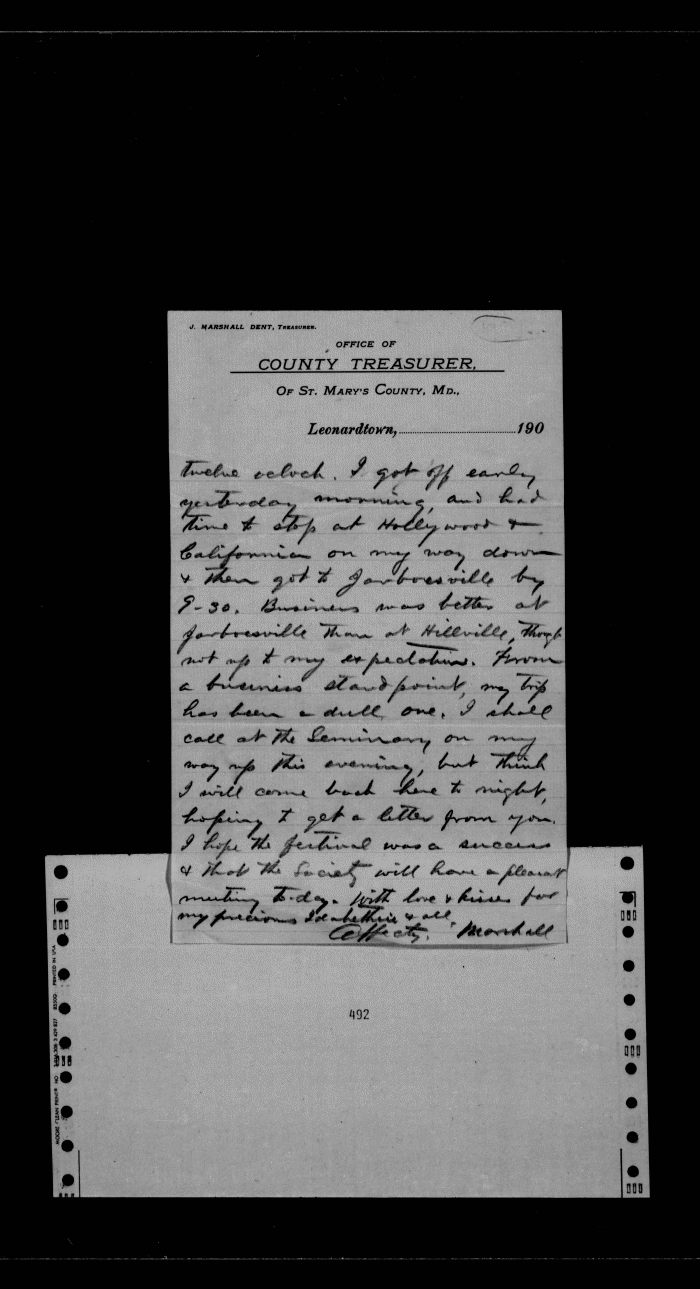 J. MARSHALL DENT, TREASURER.
OFFICE OF
COUNTY TREASURER,
OF ST. MARY'S COUNTY, MD.,
Leonardtown, 190
twelve oclock. I got off early
yesterday morning, and had
time to stop at Hollywood &
California on my way down
& then got to Jarboesville by
9-30. Business was better at
Jarboesville than at Hillville, though
not up to my expectation. From
a business standpoint, my trip
has been a dull one. I shall
call at the Seminary on my
way up this evening, but think
I will come back here to night,
hoping to get a letter from you.
I hope the festival was a success
& that the Society will have a pleasant
meeting to-day. With love & kisses for
my precious & all,
Affecty. Marshall
492